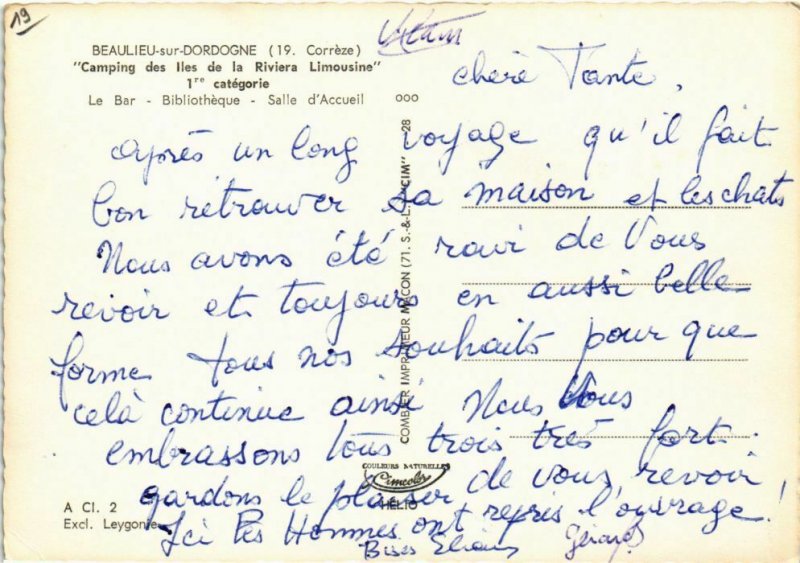 19
BEAULIEU-sur-DORDOGNE (19. Corrèze)
"Camping des Iles de la Riviera Limousine"
1re catégorie
Le Bar - Bibliothèque - Salle d'Accueil
ooo
chère Tante,
après un long voyage qu'il fait
bon retrouver sa maison et les chats
Nous avons été ravi de Vous
revoir et toujours en aussi belle
forme tous nos souhaits pour que
celà continue ainsi Nous Vous
embrassons tous trois très fort.
gardons le plaisir de vous revoir
Ici les Hommes ont repris l'ouvrage!
Bises Gérard
COMBIER IMPRIMEUR MACON (71. S.-&-L.) "CIM"
28
COULEURS NATURELLES
Cimcolor
HELIO
A Cl. 2
Excl. Leygonie